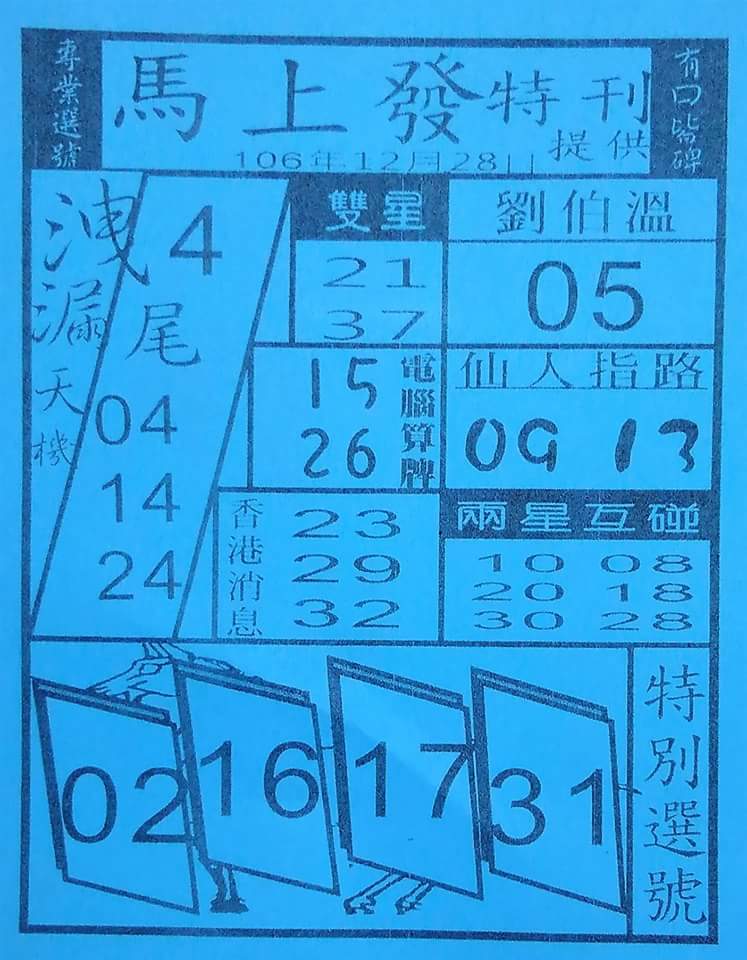 專業選號
馬上發特刊
提供
106年12月28日
有口皆碑
洩漏天機
4
尾
04
14
24
雙星
21
37
劉伯溫
05
電腦算牌
15
26
仙人指路
09 13
香港消息
23
29
32
兩星互碰
10 08
20 18
30 28
02 16 17 31
特別選號